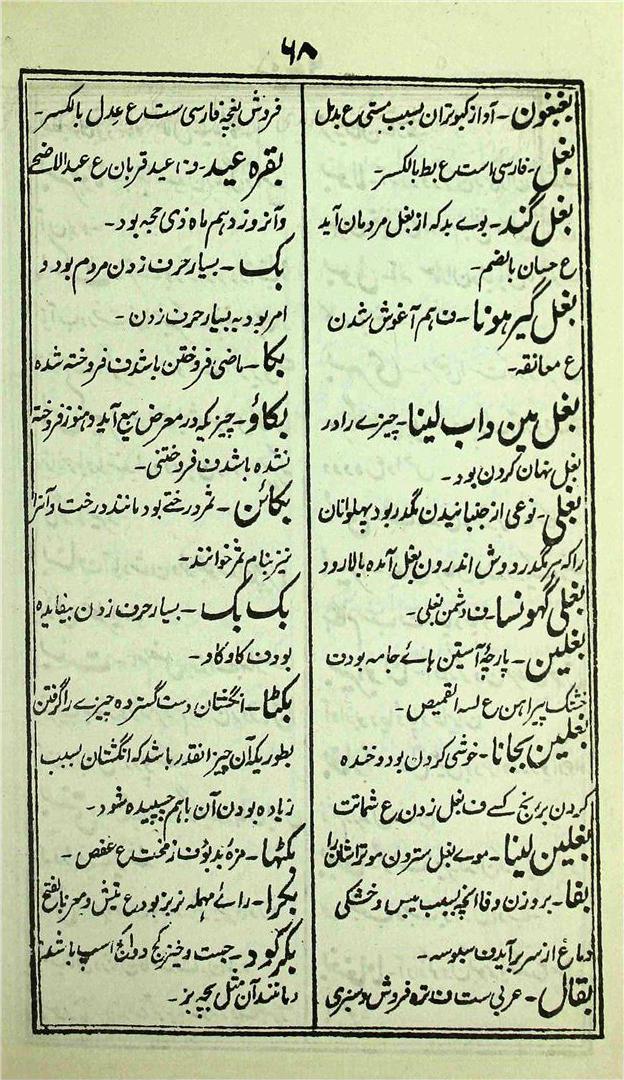 ۶۸
بغبغون۔ آواز کبوتران بسبب مستی ع بدیل
بغل۔ فارسی است ع بط بالکسر۔
بغل گند۔ بوے بد کہ از بغل مردمان آید
ع صنان بالضم۔
بغل گیر ہونا۔ ف ہم آغوش شدن
ع معانقہ۔
بغل مین داب لینا۔ چیزے را در
بغل نہان کردن بود۔
بغلی۔ نوعی از جنبانیدن مگدر بود پہلوانان
را کہ ہر مگدر دوش اندرون بغل آمدہ بالا رود
بغلی گھونسا۔ ف دشمن بغلی۔
بغلین۔ پارچۂ آستین ہائے جامہ بود ف
خشتک پیراہن ع لسہ القمیص۔
بغلین بجانا۔ خوشی کردن بود و خندہ
کردن بر رنج کسے ف بغل زدن ع شماتت
بغلین لینا۔ موے بغل ستردن موتراشان را
بفا۔ بر وزن وفا انچہ بسبب یبس و خشکی
دماغ از سر برآید ف سبوسہ۔
بقال۔ عربی ست ف ترہ فروش و سبزی
فروش بغچہ فارسی ست ع عدل بالکسر۔
بقرہ عید۔ عید قربان ع عید الاضحے
و آنروز دہم ماہ ذی حجہ بود۔
بک۔ بسیار حرف زدن مردم بود و
امر بود بہ بسیار حرف زدن۔
بکا۔ ماضی فروختن باشد ف فروختہ شدہ
بکاؤ۔ چیزیکہ در معرض بیع آید و ہنوز فروختہ
نشدہ باشد ف فروختنی۔
بکائن۔ ثمر درختے بود مانند درخت و آنرا
نیز بنام ثمر خوانند۔
بک بک۔ بسیار حرف زدن بیفایدہ
بود ف کاو کاو۔
بکٹا۔ انگشتان دست گستردہ چیزے را گرفتن
بطوریکہ آن چیز انقدر باشد کہ انگشتان بسبب
زیادہ بودن آن باہم چسپیدہ نشود۔
بکٹھا۔ مزہ بد بود ف زمخت ع عفص۔
بکرا۔ رائے مہملہ نر بز بود ع تیش و معز بالفتح
بکر کود۔ جست و خیز کج و واکج اسپ باشد
و مانند آن مثل بچہ بز۔